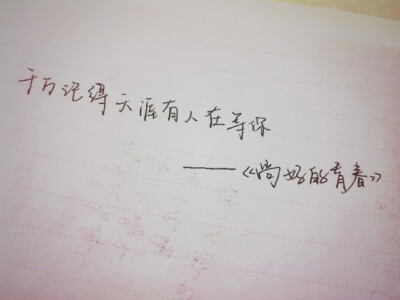 千万记得天涯有人在等你
——《尚好的青春》